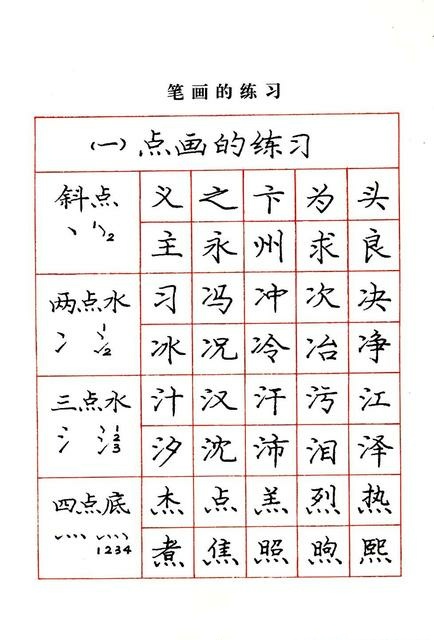 笔画的练习
(一)点画的练习
斜点
丶 1 2
义之卞为头
主永州求良
两点水
冫 1 2
习冯冲次决
冰况冷冶净
三点水
氵 1 2 3
汁汉汗污江
汐沈沛泪泽
四点底
灬 1234
杰点羔烈热
煮焦照煦熙